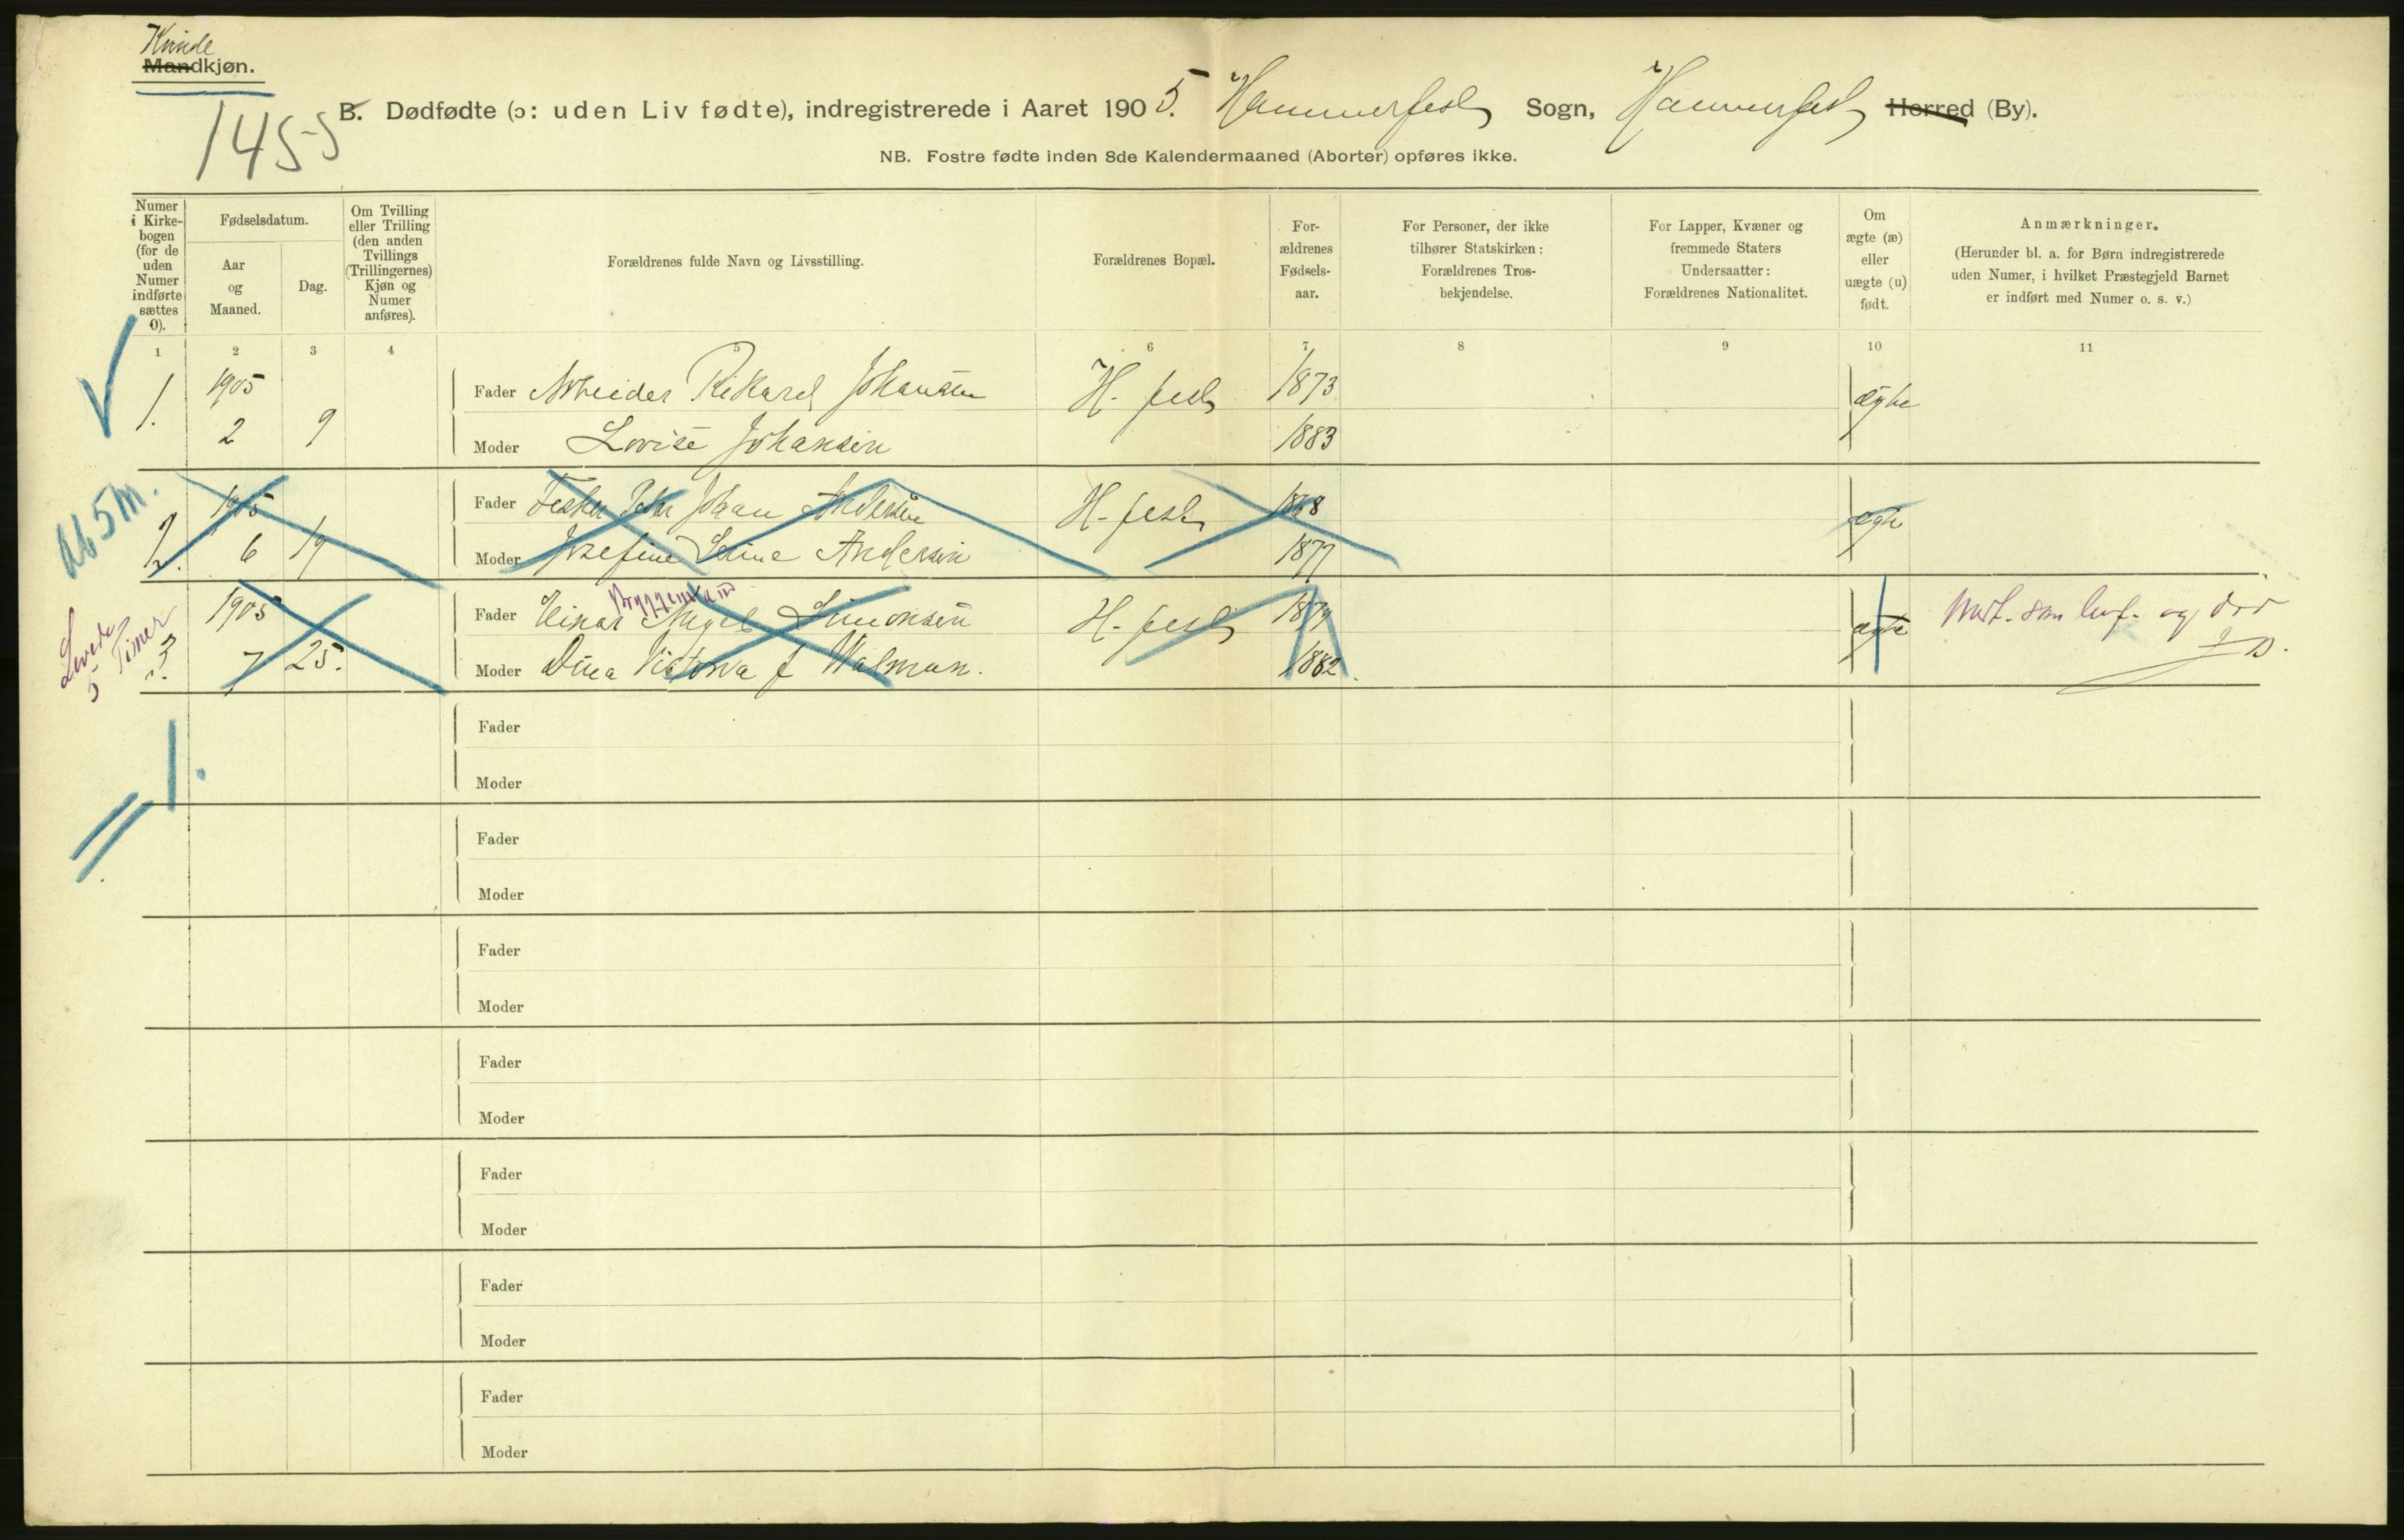 Kvinde
Mandkjøn.
1455
B. Dødfødte (ɔ: uden Liv fødte), indregistrerede i Aaret 1905. Hammerfest Sogn, Hammerfest Herred (By).
NB. Fostre fødte inden 8de Kalendermaaned (Aborter) opføres ikke.
Numer i Kirke-bogen (for de uden Numer indførte sættes 0).
Fødselsdatum.
Aar og Maaned.
Dag.
Om Tvilling eller Trilling (den anden Tvillings (Trillingernes) Kjøn og Numer anføres).
Forældrenes fulde Navn og Livsstilling.
Forældrenes Bopæl.
For-ældrenes Fødsels-aar.
For Personer, der ikke tilhører Statskirken: Forældrenes Tros-bekjendelse.
For Lapper, Kvæner og fremmede Staters Undersaatter: Forældrenes Nationalitet.
Om ægte (æ) eller uægte (u) født.
Anmærkninger.
(Herunder bl. a. for Børn indregistrerede uden Numer, i hvilket Præstegjeld Barnet er indført med Numer o. s. v.)
1 2 3 4 5 6 7 8 9 10 11
1. 1905 Fader Arbeider Rikard Johansen H. fest 1873 ægte
2 9 Moder Lovise Johansen 1883
Ab 5 M.
2. 1905 Fader Fisker Peder Johan Andersen H. fest 1868 ægte
6 19 Moder Josefine Andersen 1877
Levede 5 Timer
Byggemand
3. 1905 Fader Einar Simonsen H. fest 1879 ægte og død
7 25. Moder Dina Victoria f Walman. 1882.
Fader
Moder
1.
Fader
Moder
Fader
Moder
Fader
Moder
Fader
Moder
Fader
Moder
Fader
Moder